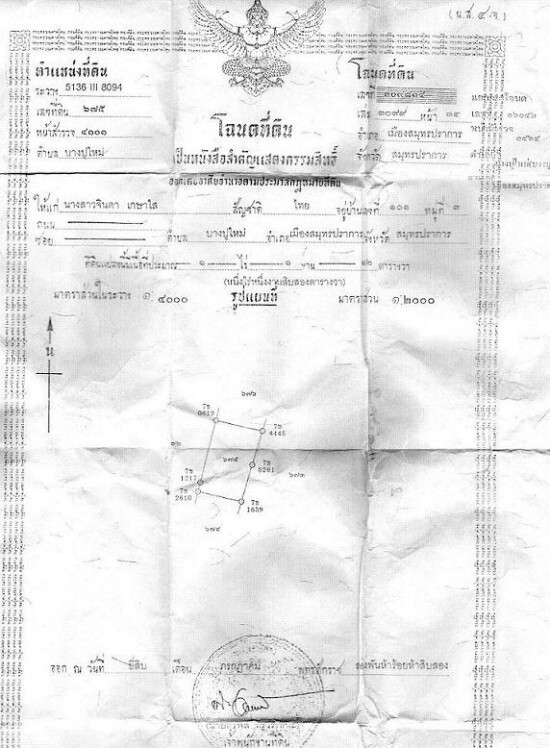 (น.ส. ๔ จ.)
ตำแหน่งที่ดิน
ระวาง 5136 III 8094
เลขที่ดิน ๖๗๕
หน้าสำรวจ ๔๐๐๐
ตำบล บางปูใหม่
โฉนดที่ดิน
เลขที่
เล่ม ๓๐๙๙ หน้า ๓๕
อำเภอ เมืองสมุทรปราการ
จังหวัด สมุทรปราการ
โฉนดที่ดิน
เป็นหนังสือสำคัญแสดงกรรมสิทธิ์
ออกโดยอาศัยอำนาจตามประมวลกฎหมายที่ดิน
ให้แก่ นางสาวจินดา เกษาใส สัญชาติ ไทย อยู่บ้านเลขที่ ๑๐๑ หมู่ที่ ๓
ถนน
ซอย ตำบล บางปูใหม่ อำเภอ เมืองสมุทรปราการ จังหวัด สมุทรปราการ
ที่ดินแปลงนี้มีเนื้อที่ประมาณ ๑ ไร่ ๑ งาน ๑๒ ตารางวา
(หนึ่งไร่หนึ่งงานสิบสองตารางวา)
มาตราส่วนในระวาง ๑:๔๐๐๐ รูปแผนที่ มาตราส่วน ๑:๒๐๐๐
น
๖๗๖
7ข
0619
7ข
4445
๖๗๕
7ข
๖๗๓
7ข
1217
7ข
2610
7ข
1659
๖๗๔
ออก ณ วันที่ ยี่สิบ เดือน กรกฎาคม พุทธศักราช สองพันห้าร้อยห้าสิบสอง
เจ้าพนักงานที่ดิน